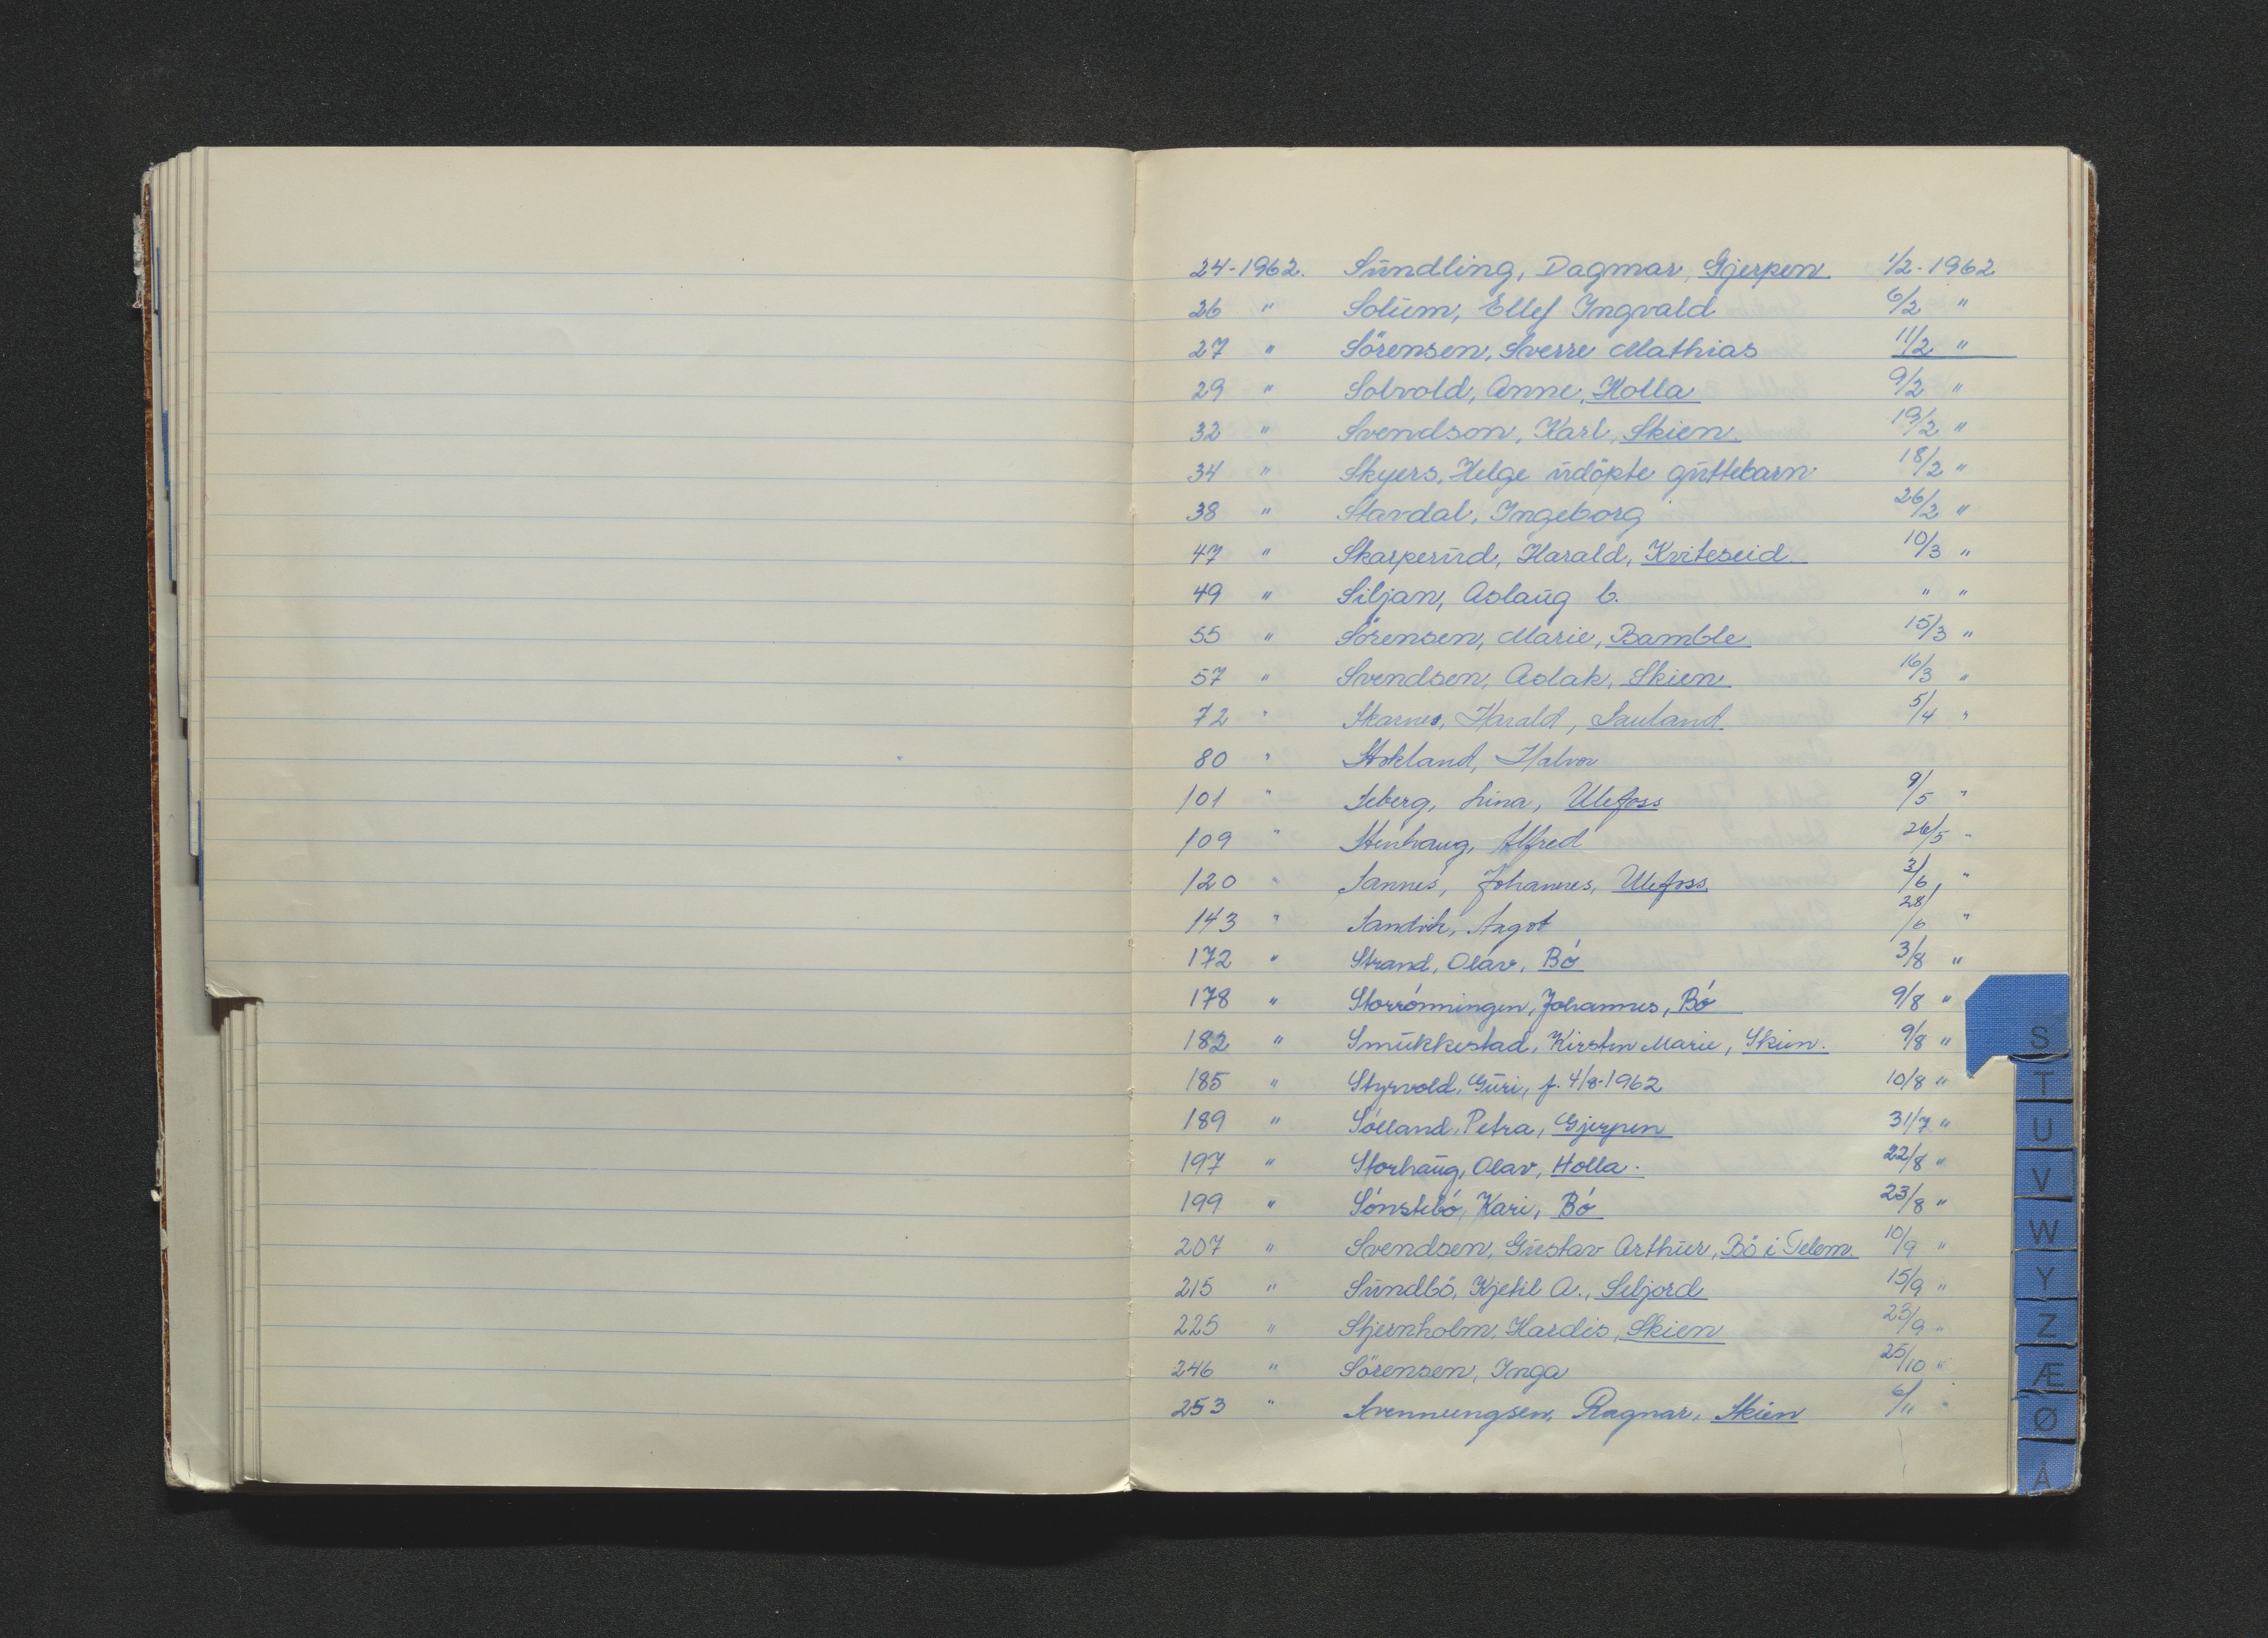 24-1962. Sundling, Dagmar, Gjerpen. 1/2-1962
26 " Solum, Ellef Ingvald 6/2 "
27 " Sörensen, Sverre Mathias 11/2 "
29 " Solvold, Anne, Holla 9/2 "
32 " Svendson, Karl, Skien. 19/2 "
34 " Skyers, Helge udöpte guttebarn 18/2 "
38 " Stavdal, Ingeborg 26/2 "
47 " Skarperud, Harald, Kviteseid. 10/3 "
49 " Siljan, Aslaug b. " "
55 " Sörensen, Marie, Bamble 15/3 "
57 " Svendsen, Aslak, Skien 16/3 "
72 " Skarnes, Harald, Sauland 5/4 "
80 " Stokland, Halvor
101 " Seberg, Lina, Ulefoss 9/5 "
109 " Stenhaug, Alfred 26/5 "
120 " Sannes, Johannes, Ulefoss 3/6 "
143 " Sandvik, Aagot 28/6 "
172 " Strand, Olav, Bó 3/8 "
178 " Storrónningen, Johannes, Bó 9/8 "
182 " Smukkestad, Kirsten Marie, Skien. 9/8 "
185 " Styrvold, Guri, f. 4/8-1962 10/8 "
189 " Sólland, Petra, Gjerpen 31/7 "
197 " Storhaug, Olav, Holla. 22/8 "
199 " Sónstebó, Kari, Bó 23/8 "
207 " Svendsen, Gustav Arthur, Bö i Telem. 10/9 "
215 " Sundbö, Kjetil A., Seljord 15/9 "
225 " Stjernholm, Hardis, Skien 23/9 "
246 " Sörensen, Inga 25/10 "
253 " Svennungsen, Ragnar, Skien 6/11 "
S
T
U
V
W
Y
Z
Æ
Ø
Å